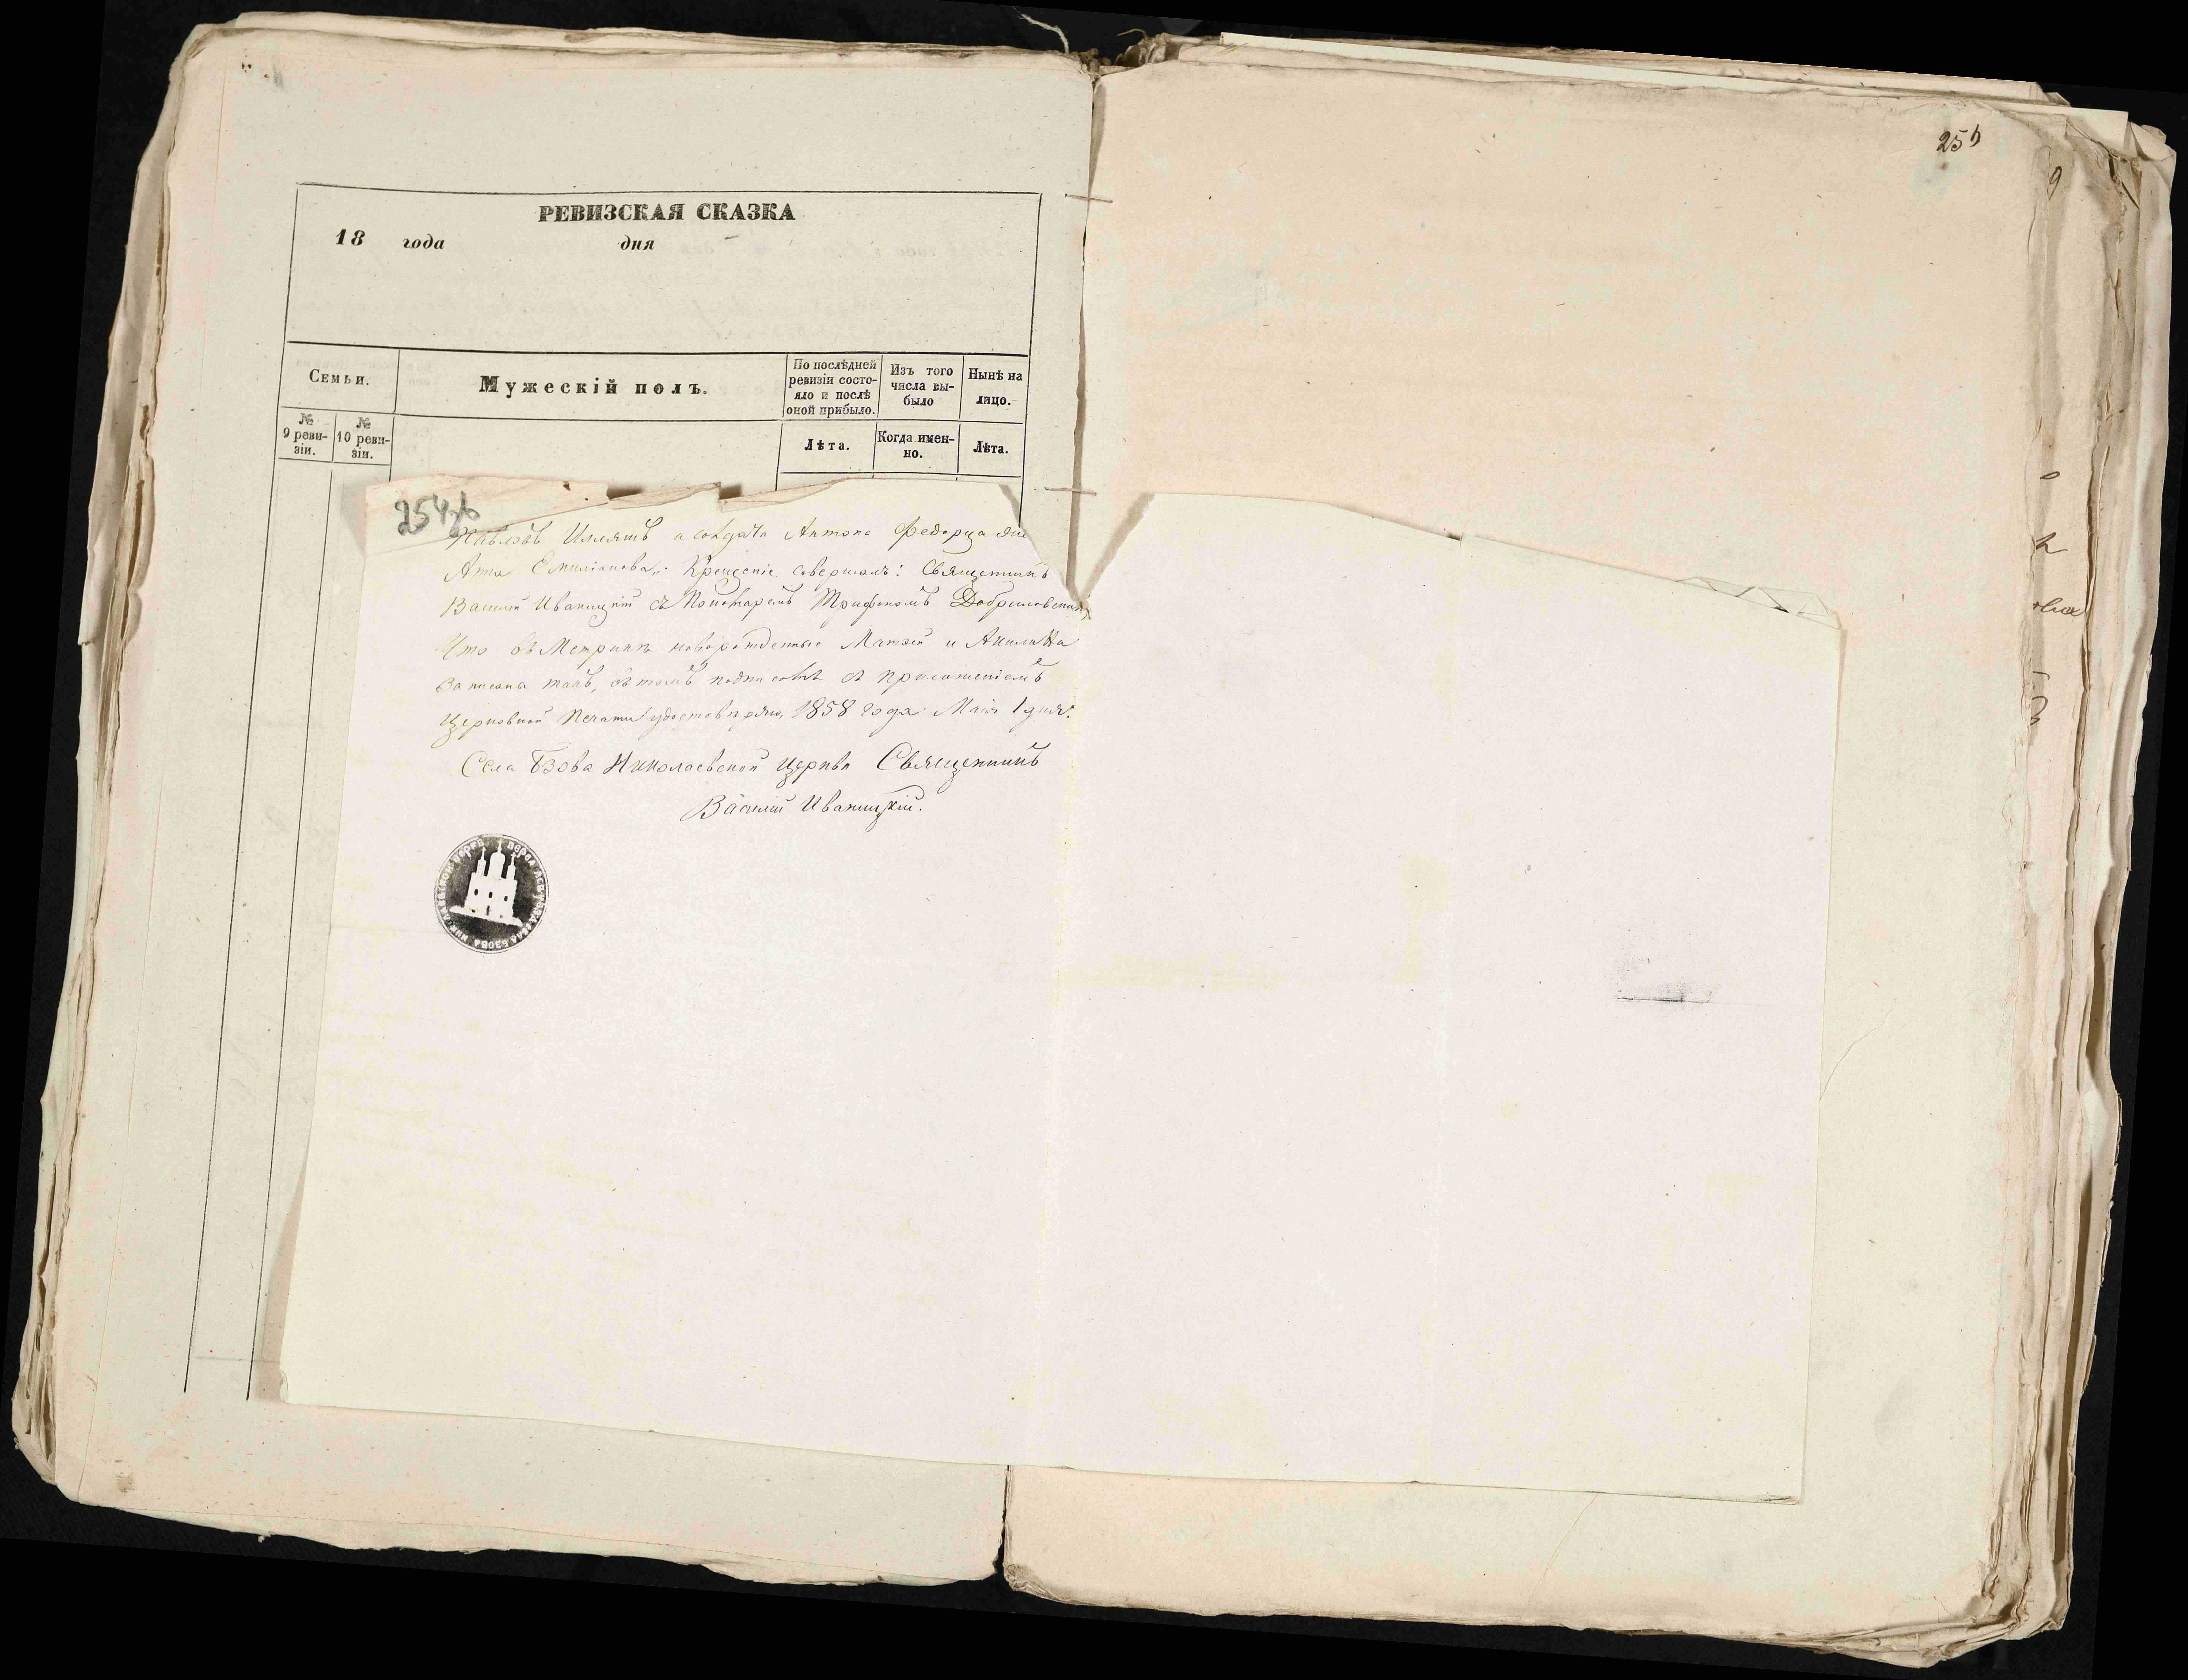 РЕВИЗСКАЯ СКАЗКА
18 года дня
Семьи.
Мужескій полъ.
По послѣдней ревизіи состояло и послѣ оной прибыло.
Изъ того числа выбыло
Нынѣ на лицо.
№ 9 ревизіи.
№ 10 ревизіи.
Лѣта.
Когда именно.
Лѣта.
254
Антона Федорца
Анна Емиліанова. Крещеніе совершалъ: Священникъ
Василій Иваницкій съ Пономаремъ Трифономъ
Что въ Метрикѣ новорожденные Матѳій и Акилина
записаны такъ, въ томъ подписомъ съ приложеніемъ
Церковной печати удостовѣряю, 1858 года Маія 1 дня.
Села Бзова Николаевской Церкви Священникъ
Василій Иваницкій.
СЕЛА БЗОВА